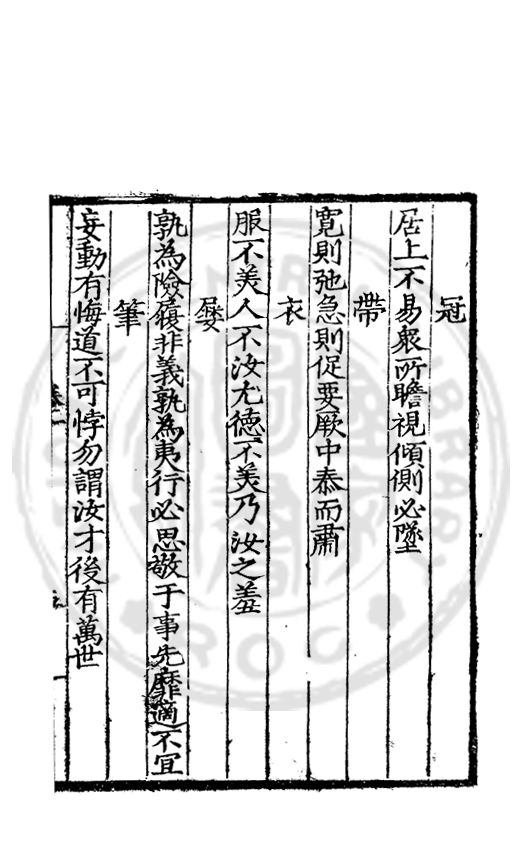 冠
居上不易衆所瞻視傾側必墜
帶
寛則弛急則促要厥中泰而肅
衣
服不美人不汝尤德不美乃汝之羞
屨
孰為險履非義孰為夷行必思敬于事先靡適不宜
筆
妄動有悔道不可悖勿謂汝才後有萬世